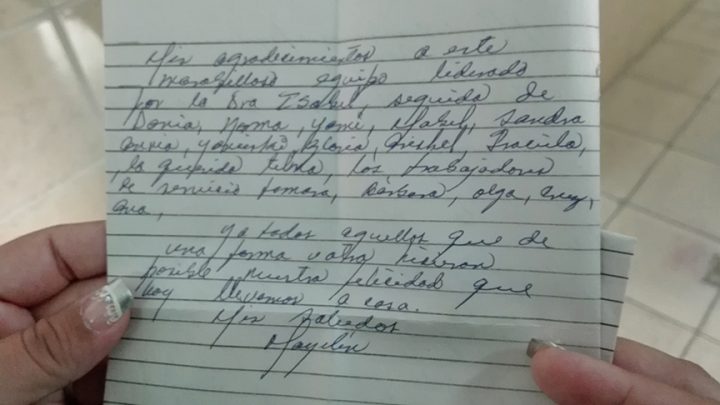 Mis agradecimientos a este
maravilloso equipo liderado
por la Dra Isabel, seguida de
Dania, Norma, Yami, Mabel, Sandra
Gloria, Grisbel, Graciela,
la querida Telma, los trabajadores
de servicio Tamara, Barbara, Olga,
Ana,
y a todos aquellos que de
una forma u otra hicieron
posible nuestra felicidad que
hoy llevamos a casa.
Mis saludos
Maylin